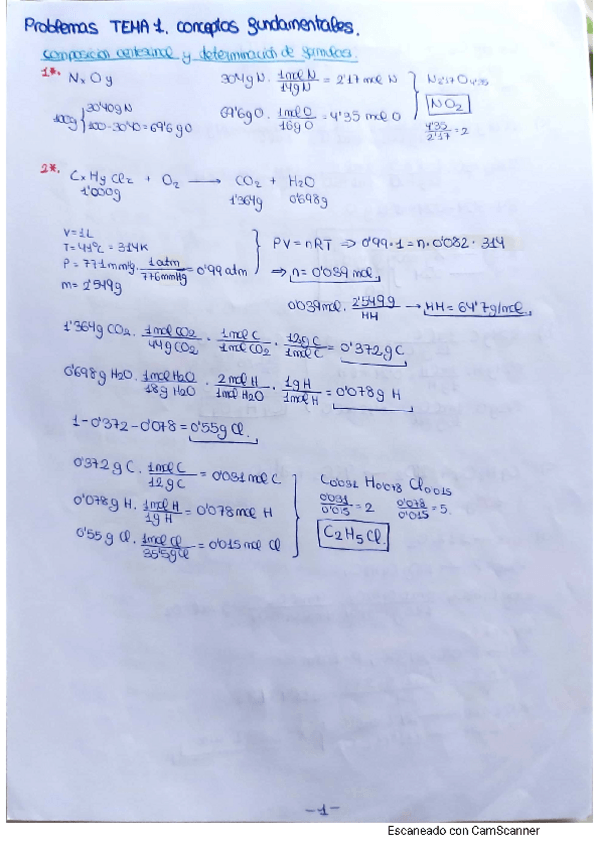 Problemas TEMA 1. conceptos fundamentales.
composición centesimal y determinación de fórmulas.
1*. NxOy
100g { 30'40g N
100-30'40=69'6g O
30'4g N · 1mol N / 14g N = 2'17 mol N
69'6g O · 1mol O / 16g O = 4'35 mol O
N2'17 O4'35
NO2
4'35 / 2'17 = 2
2*. CxHyClz + O2 → CO2 + H2O
1'000g 1'364g 0'698g
V=1L
T=41ºC = 314K
P=771mmHg · 1atm / 776mmHg = 0'99 atm
m=2'549g
PV=nRT ⇒ 0'99·1=n·0'082·314
⇒ n=0'039 mol
0'039mol · 2'549g / MM → MM=64'7g/mol
1'364g CO2 · 1mol CO2 / 44g CO2 · 1mol C / 1mol CO2 · 12g C / 1mol C = 0'372g C
0'698g H2O · 1mol H2O / 18g H2O · 2mol H / 1mol H2O · 1g H / 1mol H = 0'078g H
1-0'372-0'078=0'55g Cl.
0'372g C · 1mol C / 12g C = 0'031mol C
0'078g H · 1mol H / 1g H = 0'078mol H
0'55g Cl · 1mol Cl / 35'5g Cl = 0'015mol Cl
C0'031 H0'078 Cl0'015
0'031 / 0'015 = 2 0'078 / 0'015 = 5.
C2H5Cl
-1-
Escaneado con CamScanner